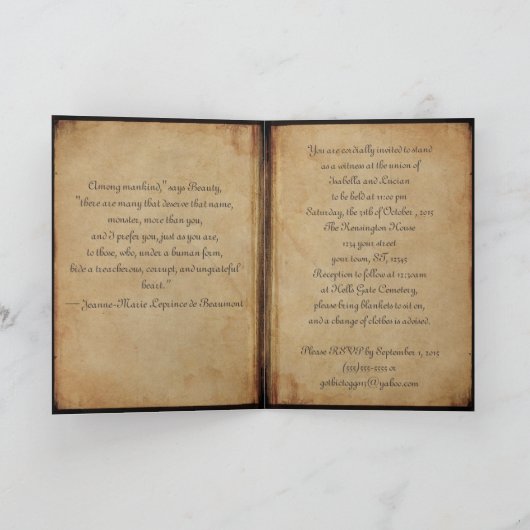 Among mankind," says Beauty,
"there are many that deserve that name,
monster, more than you,
and I prefer you, just as you are,
to those, who, under a human form,
hide a treacherous, corrupt, and ungrateful
heart."
— Jeanne-Marie Leprince de Beaumont
You are cordially invited to stand
as a witness at the union of
Isabella and Lucian
to be held at 11:00 pm
Saturday, the 31st of October , 2015
The Kensington House
1234 your street
your town, ST, 12345
Reception to follow at 12:30am
at Hells Gate Cemetery,
please bring blankets to sit on,
and a change of clothes is advised.
Please RSVP by September 1, 2015
(555)555-5555 or